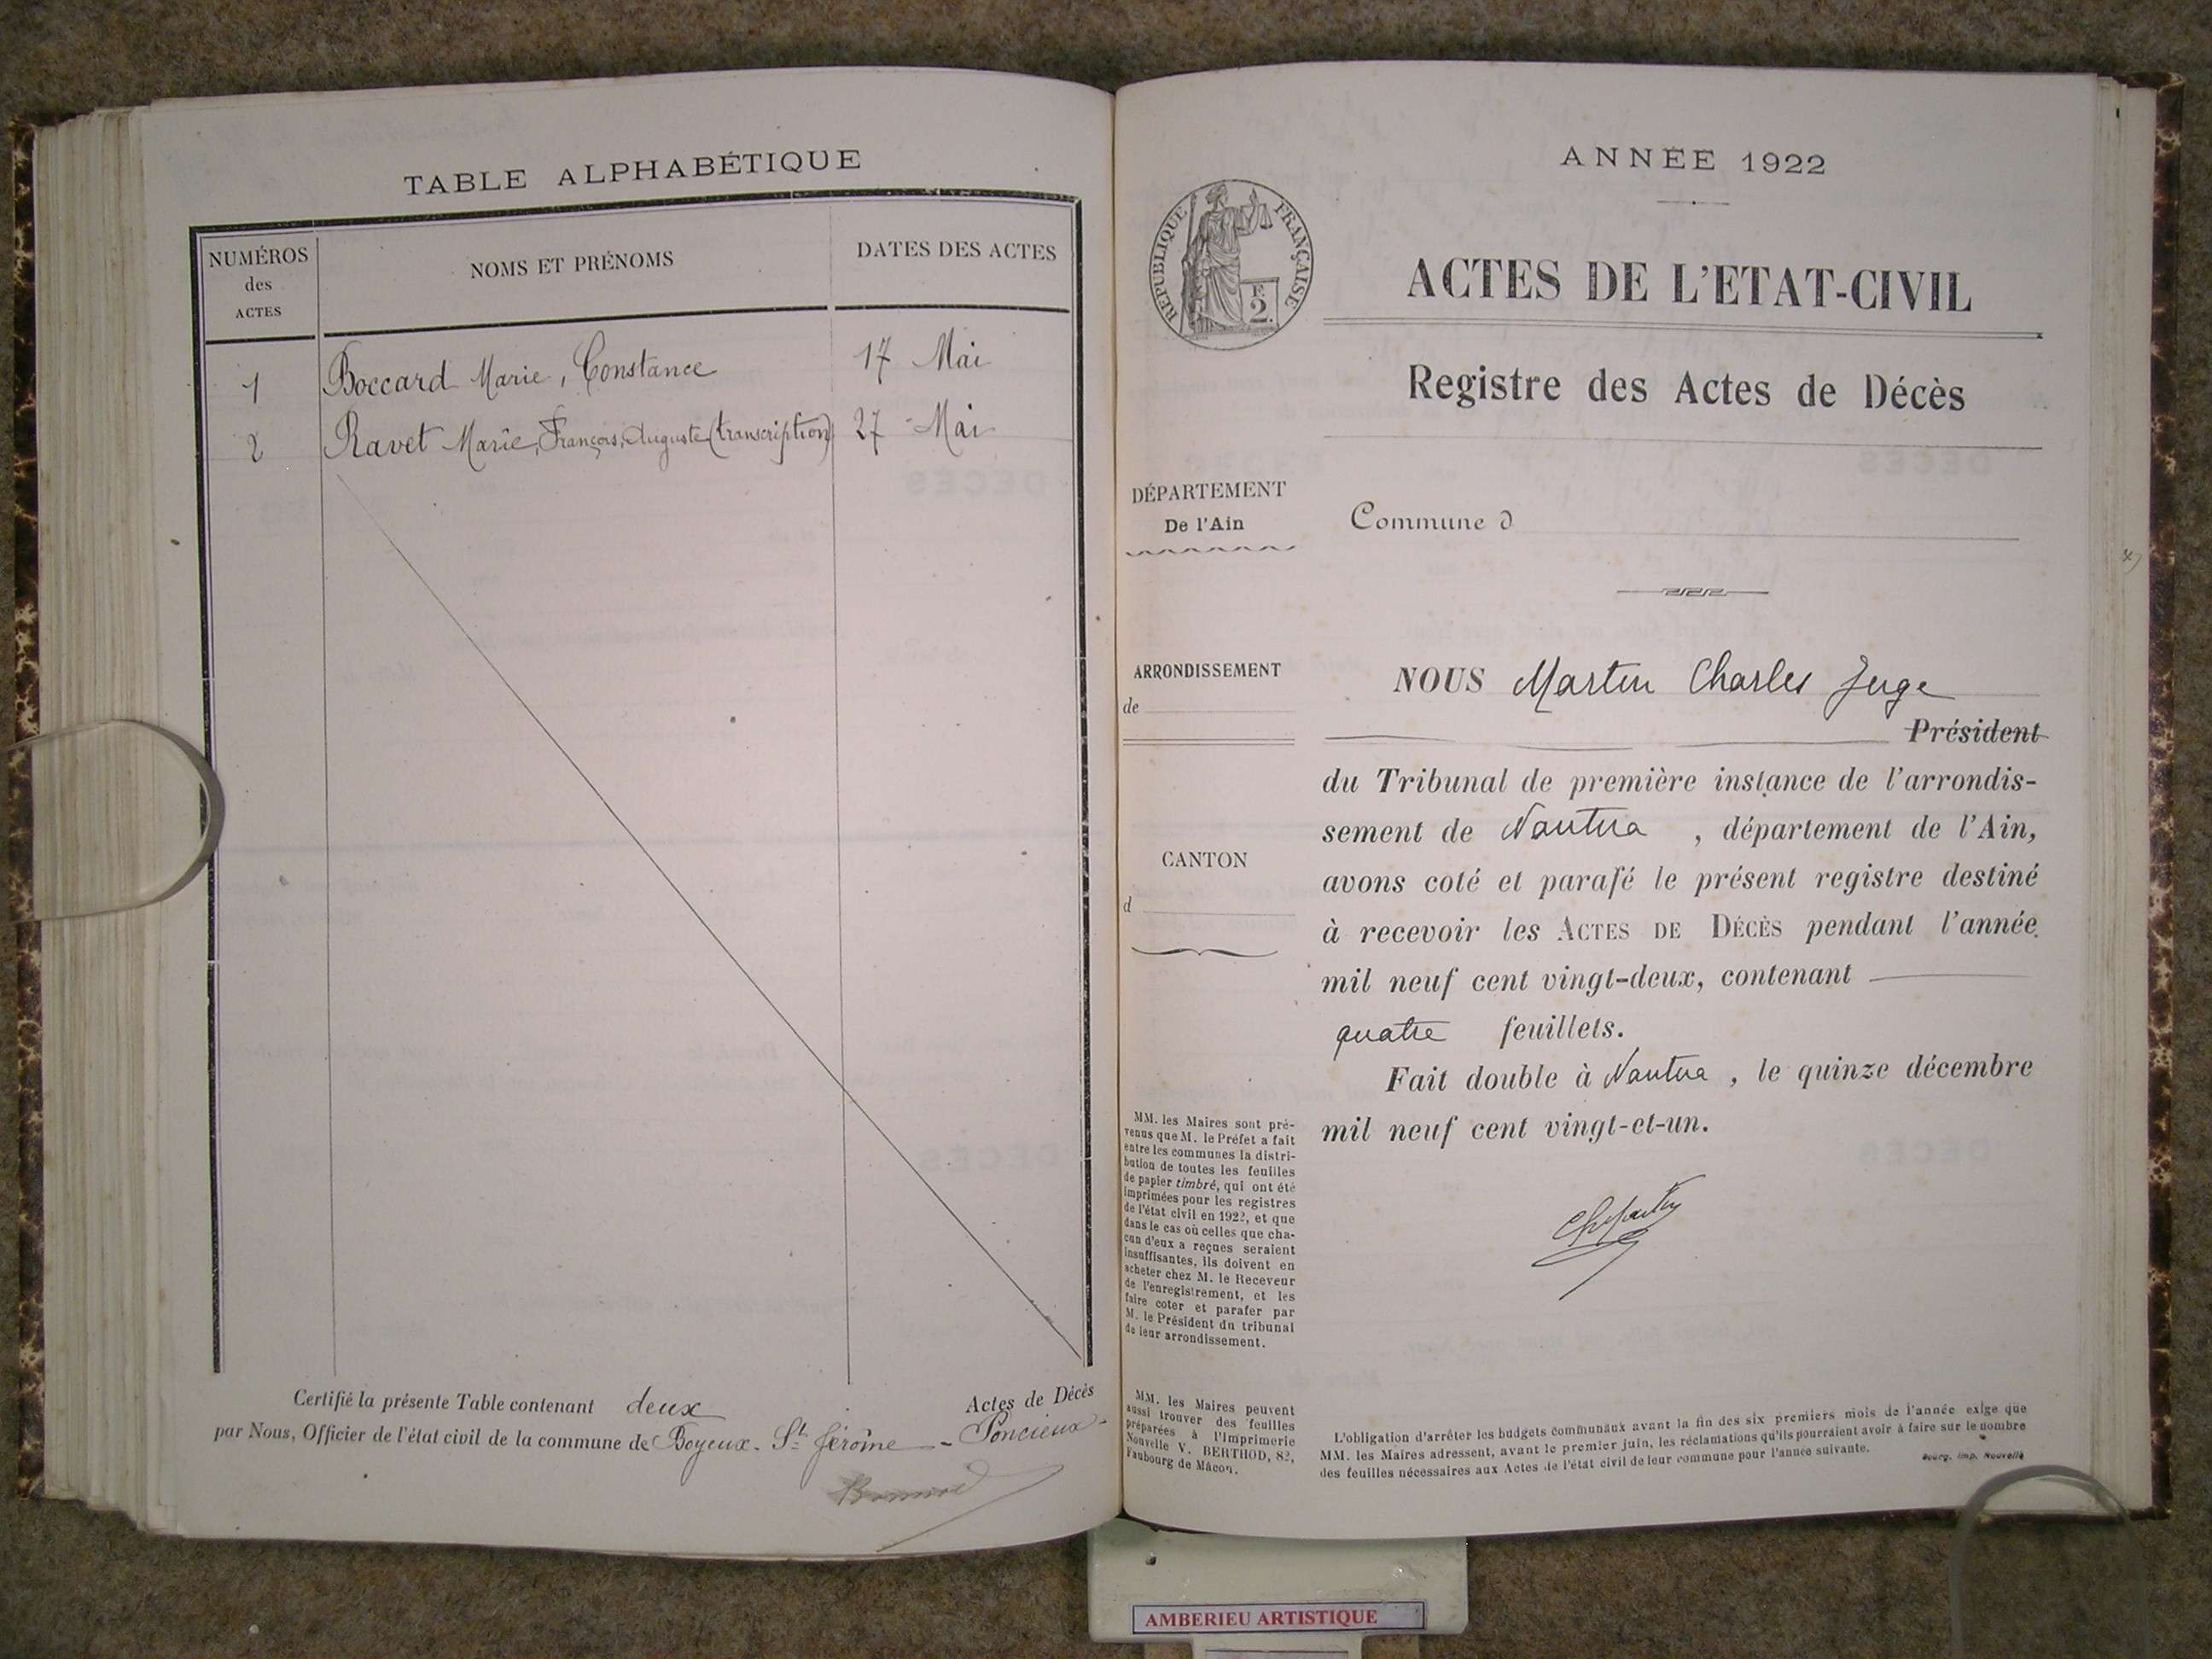 TABLE ALPHABÉTIQUE
NUMÉROS
des
ACTES
NOMS ET PRÉNOMS
DATES DES ACTES
1 Boccard Marie, Constance 17 Mai
2 Ravet Marie, François, Auguste (transcription) 27 Mai
Certifié la présente Table contenant deux Actes de Décès
par Nous, Officier de l'état civil de la commune de Boyeux-St Jérôme - Poncieux
ANNÉE 1922
RÉPUBLIQUE FRANÇAISE
E
2.
ACTES DE L'ETAT-CIVIL
Registre des Actes de Décès
DÉPARTEMENT
De l'Ain
Commune d
ARRONDISSEMENT
de
CANTON
d
NOUS Martin Charles Juge
Président
du Tribunal de première instance de l'arrondis-
sement de Nantua, département de l'Ain,
avons coté et parafé le présent registre destiné
à recevoir les ACTES DE DÉCÈS pendant l'année
mil neuf cent vingt-deux, contenant
quatre feuillets.
Fait double à Nantua, le quinze décembre
mil neuf cent vingt-et-un.
Ch Martin
MM. les Maires sont pré-
venus que M. le Préfet a fait
entre les communes la distri-
bution de toutes les feuilles
de papier timbré, qui ont été
imprimées pour les registres
de l'état civil en 1922, et que
dans le cas où celles que cha-
cun d'eux a reçues seraient
insuffisantes, ils doivent en
acheter chez M. le Receveur
de l'enregistrement, et les
faire coter et parafer par
M. le Président du tribunal
de leur arrondissement.
MM. les Maires peuvent
aussi trouver des feuilles
préparées à l'Imprimerie
Nouvelle V. BERTHOD, 82,
Faubourg de Mâcon.
L'obligation d'arrêter les budgets communaux avant la fin des six premiers mois de l'année exige que
MM. les Maires adressent, avant le premier juin, les réclamations qu'ils pourraient avoir à faire sur le nombre
des feuilles nécessaires aux Actes de l'état civil de leur commune pour l'année suivante.
Bourg, Imp. Nouvelle
AMBERIEU ARTISTIQUE